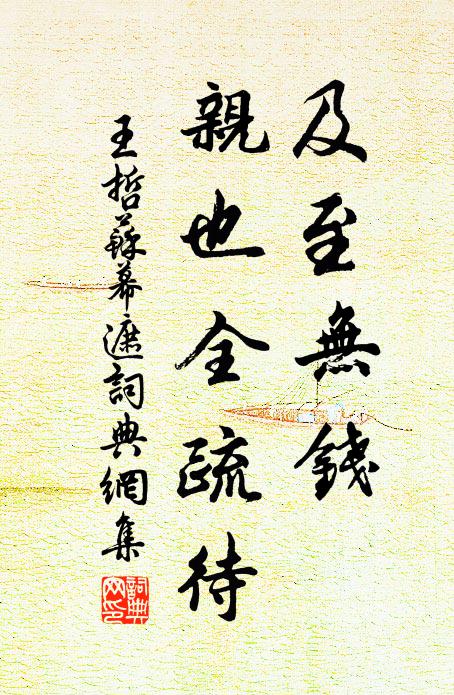 及至無錢
親也全疏待
王哲蘇幕遮詞典網集
詞典
網印